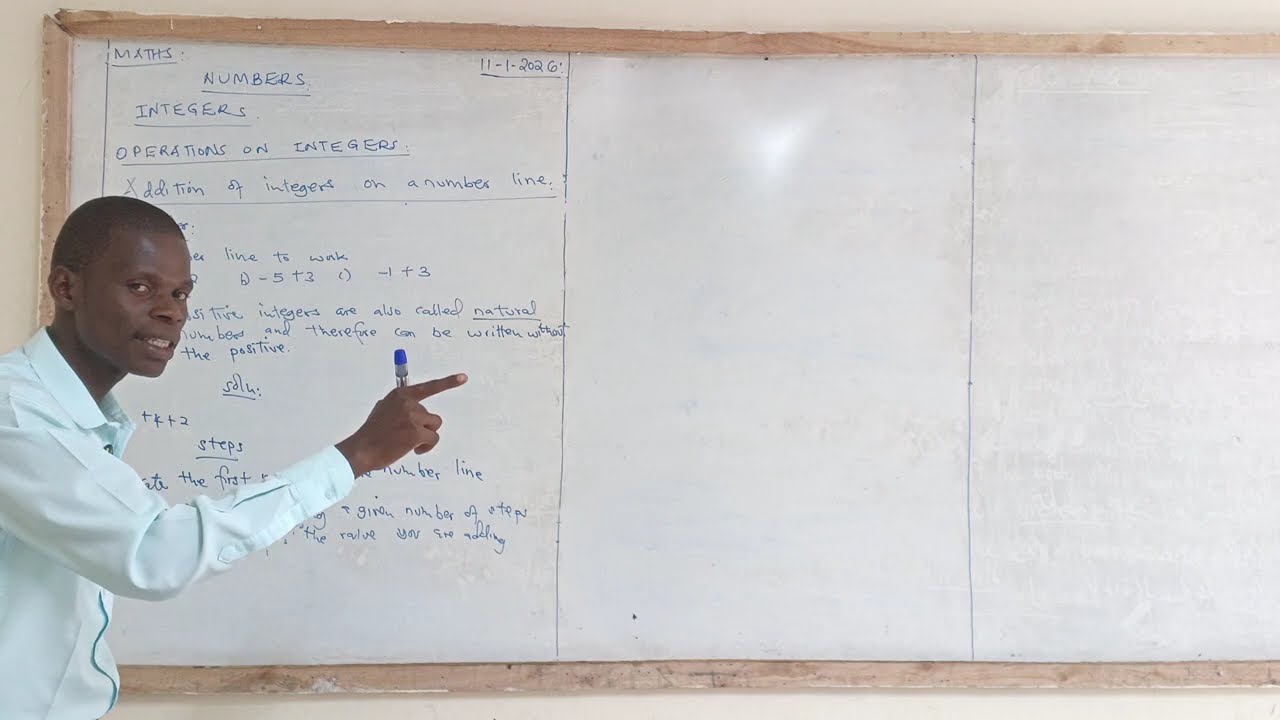 MATHS:
11-1-2026:
NUMBERS.
INTEGERS.
OPERATIONS ON INTEGERS:
Addition of integers on a number line:
line to work
b) -5+3 c) -1+3
integers are also called natural
numbers and therefore can be written without
the positive.
soln:
+4+2
steps
the first number line
a given number of steps
the value you are adding